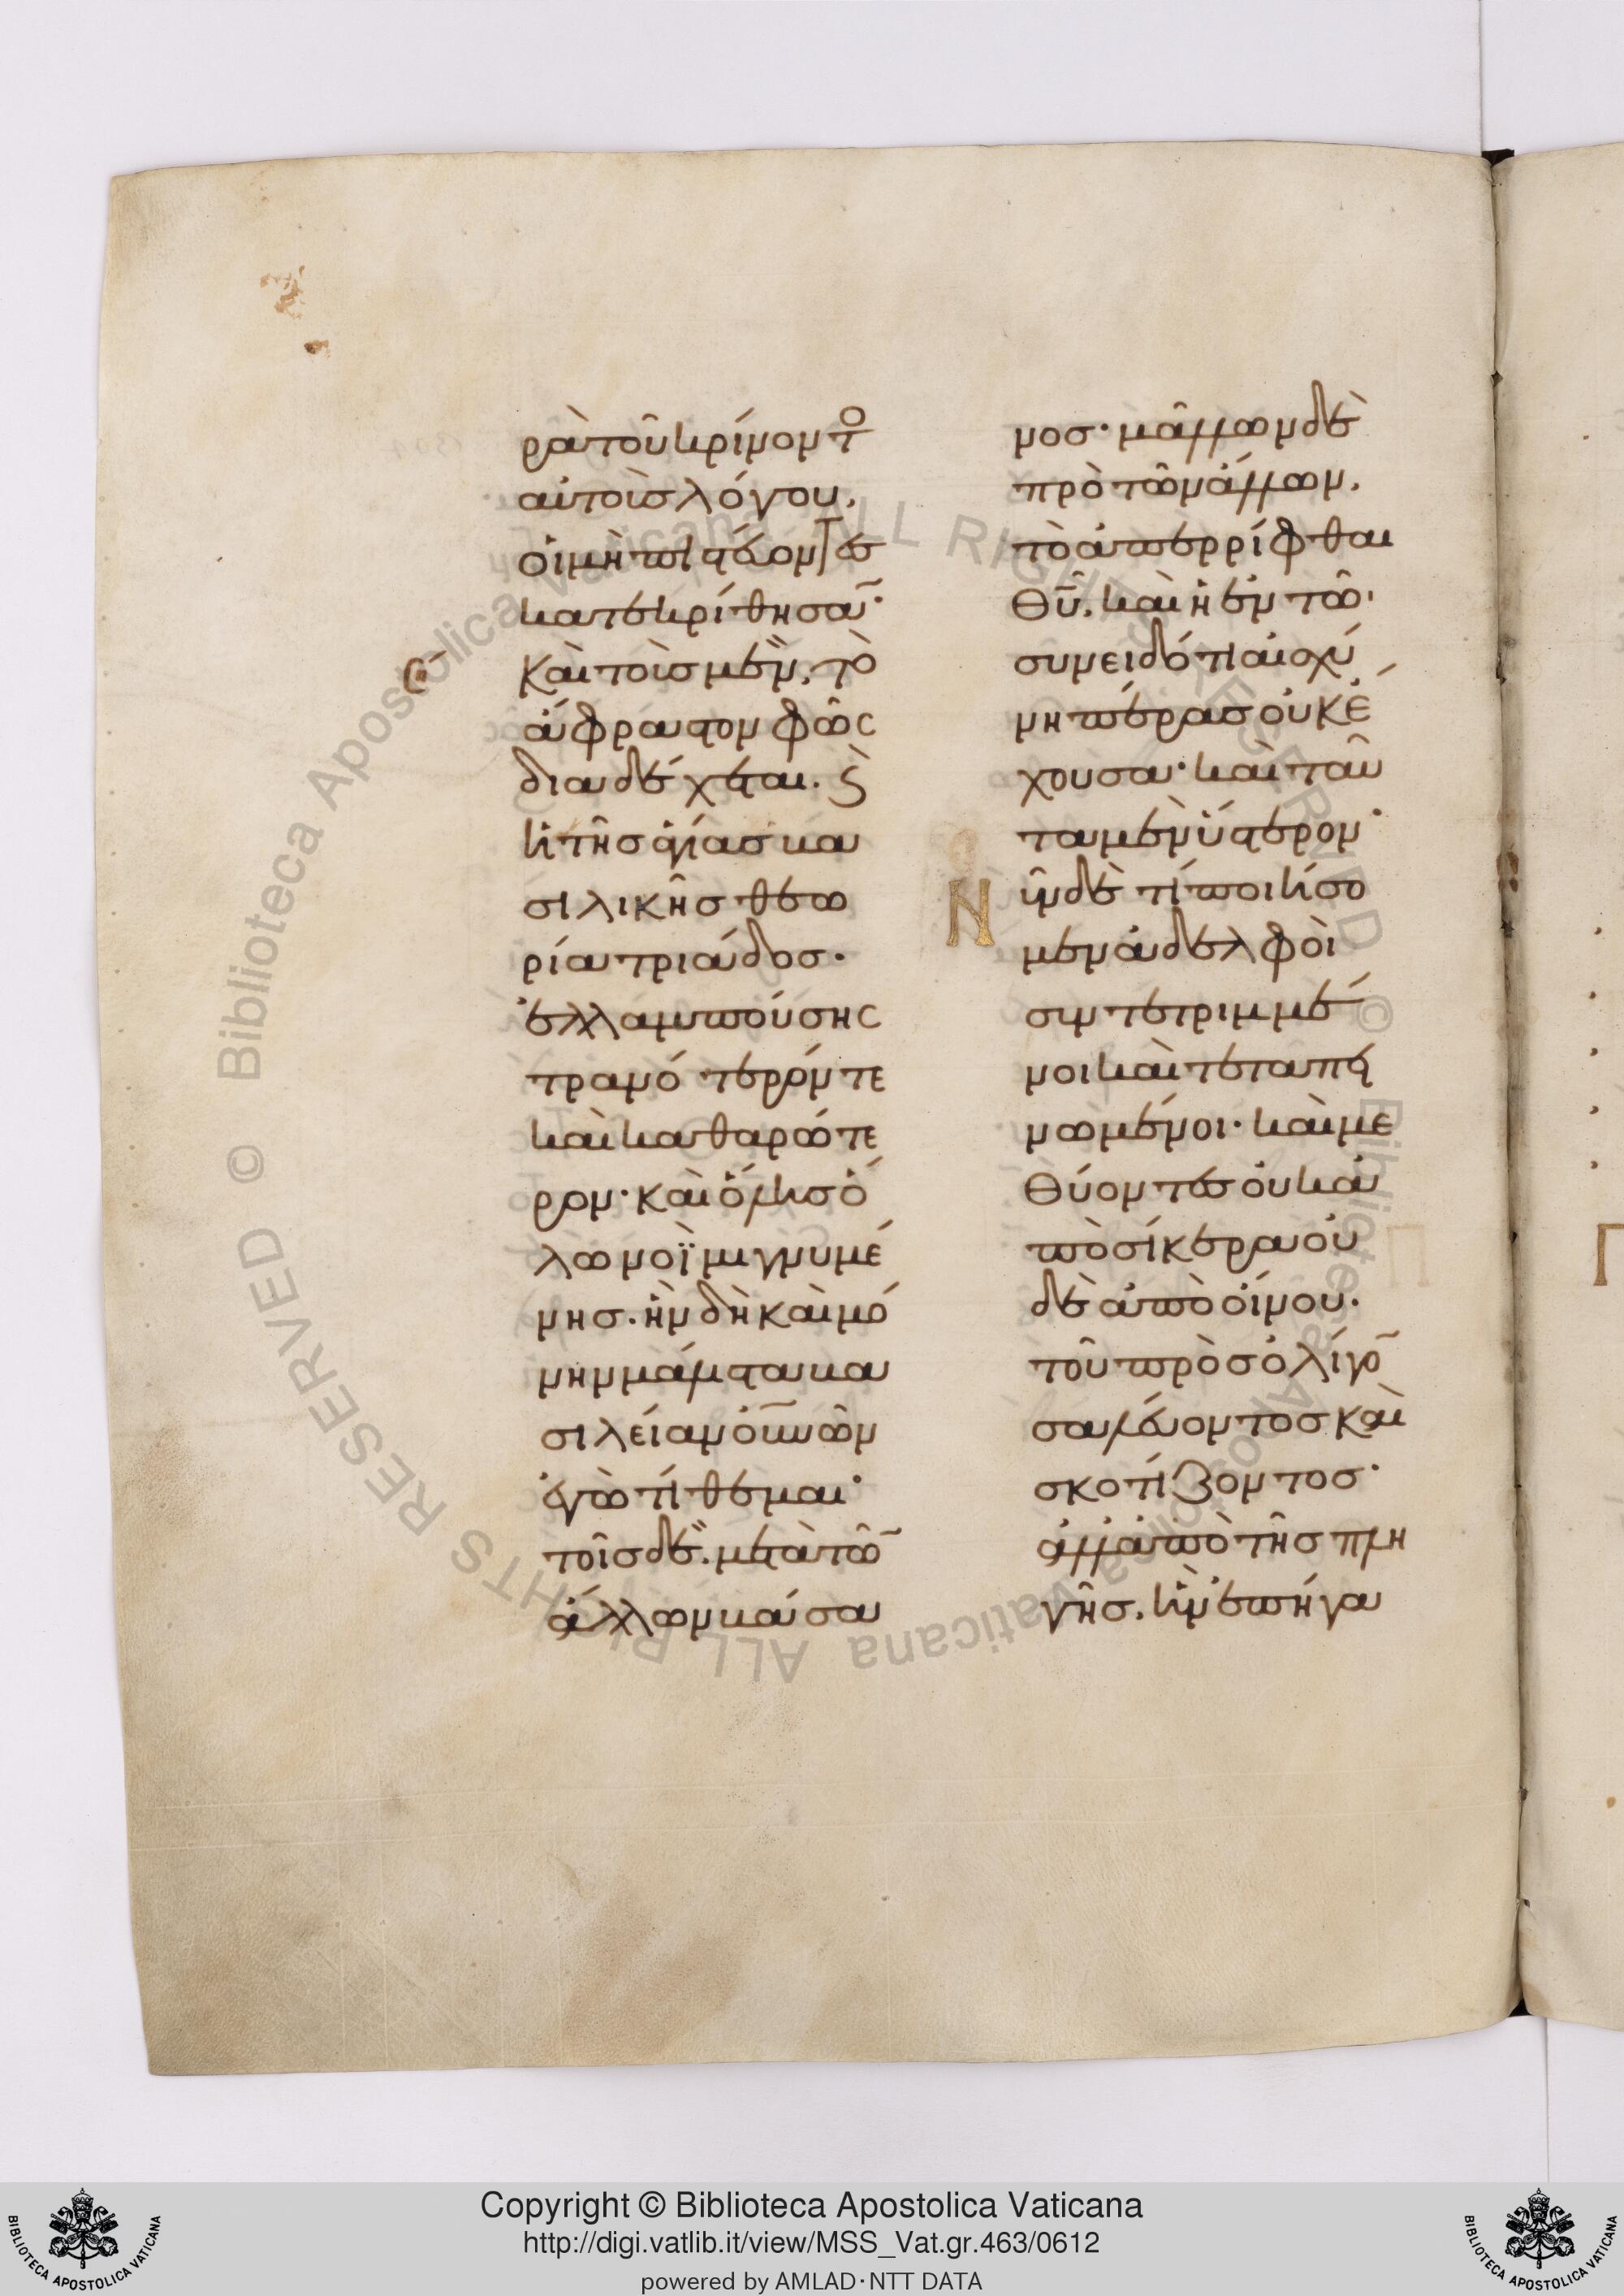 ρὰ τοῦ κρίνοντο
αὐτοῖς λόγου,
οἱ μὴ πιστεύοντες
κατεκρίθησαν·
Καὶ τοῖς μὲν, τὸ
ἄφραστον φῶς
διαδέχεται. ϗ
ἡ τῆς ἁγίας καὶ βα
σιλικῆς θεω
ρία τριάδος·
ἐλλαμπούσης
τρανότερόν τε
καὶ καθαρώτε
ρον· καὶ ὅλης ὅ
λω νοῒ μιγνυμέ
νης. ἣν δὴ καὶ μό
νην μάλιστα βα
σιλείαν οὐνῶν
ἐγὼ τίθεμαι·
τοῖς δὲ. μετὰ τῶν
ἄλλων βάσα
νος· μᾶλλον δὲ
πρὸ τῶν ἄλλων,
τὸ ἀπερρίφθαι
θυ, καὶ ἡ ἐν τῶ
συνειδότι αἰσχύ
νη πέρας οὐκ ἔ
χουσα· καὶ ταῦ
τα μὲν ὕστερον·
Νῦν δὲ τί ποιήσο
μεν ἀδελφοὶ
συντετριμμέ
νοι καὶ τεταπει
νωμένοι· καὶ με
θύοντες οὐκ ἀ
πὸ σίκερα οὐ
δὲ ἀπὸ οἴνου.
τοῦ πρὸς ὀλίγον
σαλεύοντος καὶ
σκοτίζοντος·
ἀλλ' ἀπὸ τῆς πλη
γῆς, ἣν ἐπήγα
Copyright © Biblioteca Apostolica Vaticana
http://digi.vatlib.it/view/MSS_Vat.gr.463/0612
powered by AMLAD·NTT DATA
BIBLIOTECA APOSTOLICA VATICANA
BIBLIOTECA APOSTOLICA VATICANA
© Biblioteca Apostolica Vaticana ALL RIGHTS RESERVED © Biblioteca Apostolica Vaticana ALL RIGHTS RESERVED